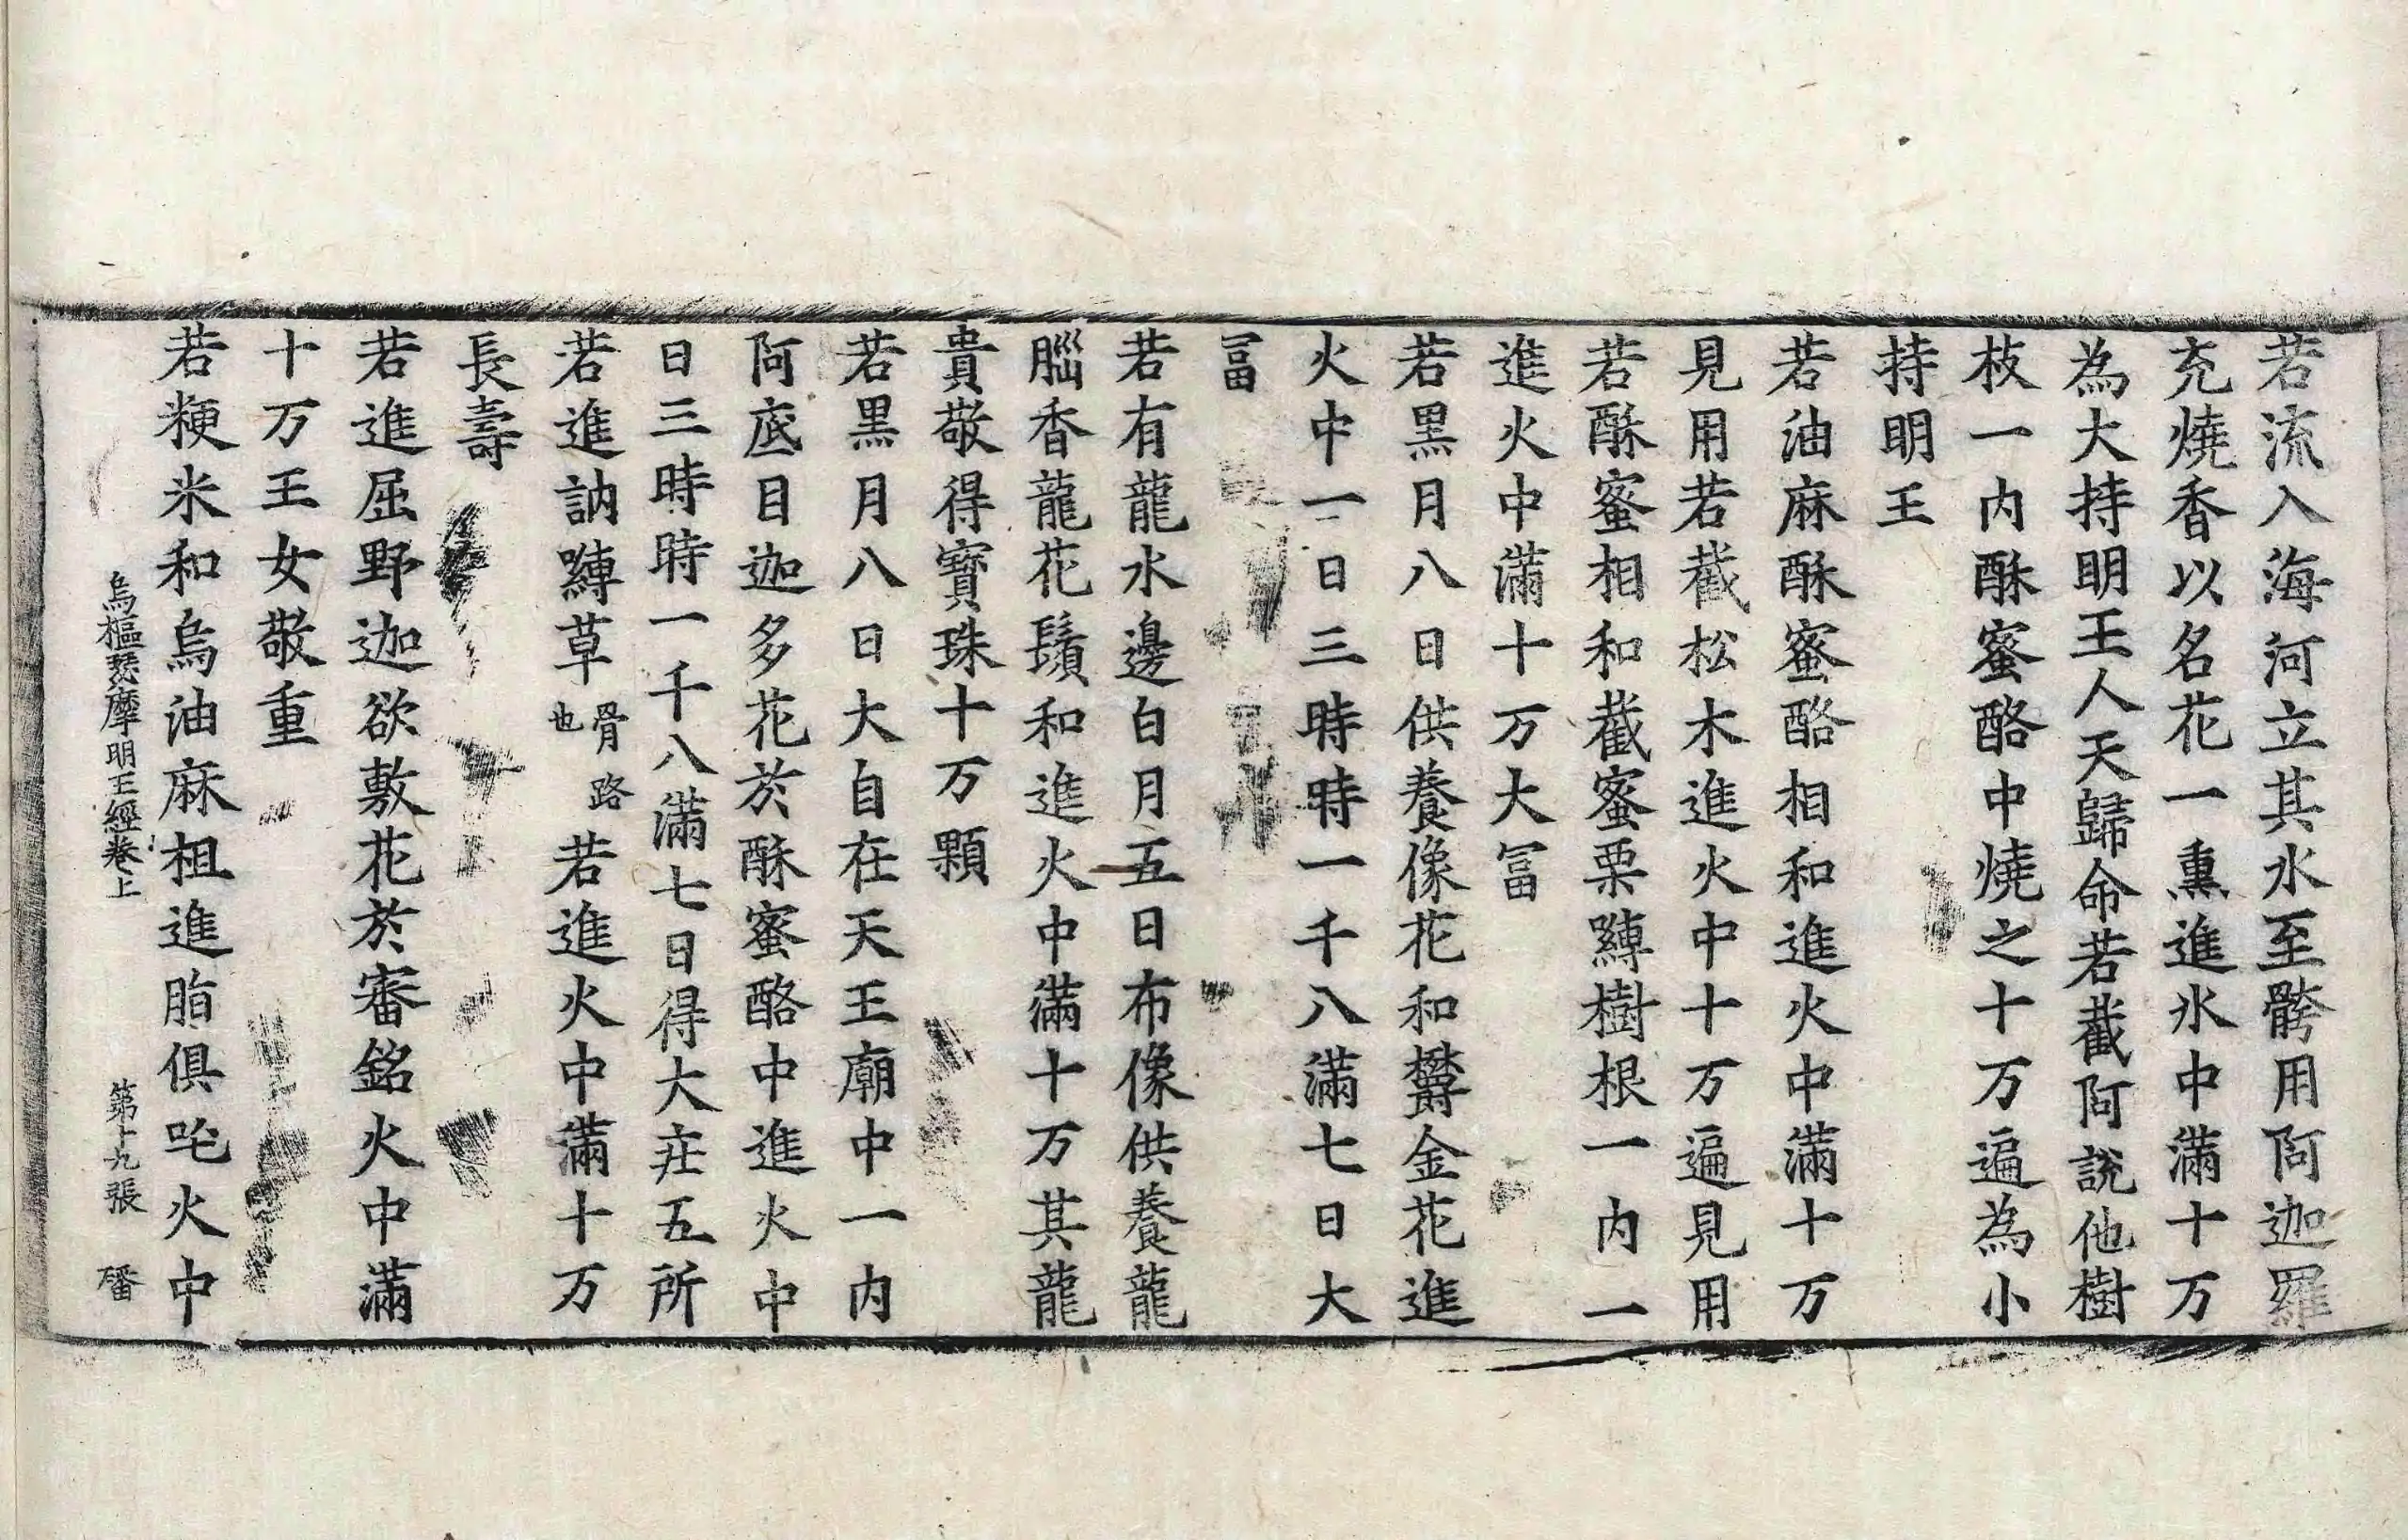 若流入海河立其水至骻用阿迦羅
充燒香以名花一熏進水中滿十万
為大持明王人天歸命若截阿說他樹
枝一内酥蜜酪中燒之十万遍為小
持明王
若油麻酥蜜酪相和進火中滿十万
見用若截松木進火中十万遍見用
若酥蜜相和截蜜栗䟽樹根一内一
進火中滿十万大冨
若黑月八日供養像花和欝金花進
火中一日三時時一千八滿七日大
冨
若有龍水邊白月五日布像供養龍
腦香龍花鬚和進火中滿十万其龍
貴敬得寶珠十万顆
若黑月八日大自在天王廟中一内
阿底目迦多花於酥蜜酪中進火中
日三時時一千八滿七日得大庄五所
若進訥嚩草骨路也若進火中滿十万
長壽
若進屈野迦欲敷花於審銘火中滿
十万王女敬重
若粳米和烏油麻柤進脂俱吒火中
烏樞瑟摩明王經卷上 第十九張 璠